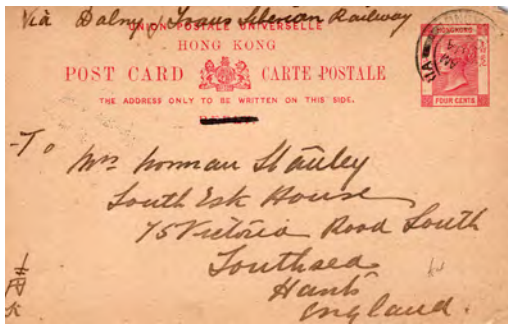 Via Dalny / Trans Siberian Railway
UNION POSTALE UNIVERSELLE
HONG KONG
POST CARD CARTE POSTALE
THE ADDRESS ONLY TO BE WRITTEN ON THIS SIDE.
HONGKONG
FOUR CENTS
To
Mrs Norman Stanley
South Esk House
75 Victoria Road South
Southsea
Hants
England.